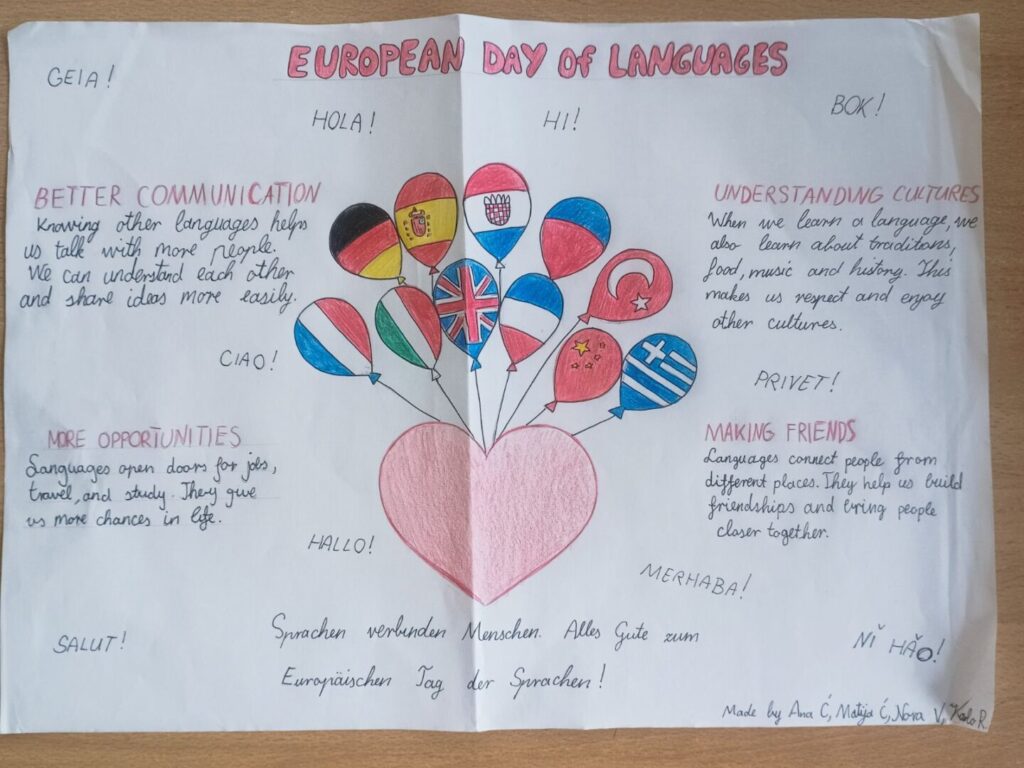 EUROPEAN DAY OF LANGUAGES
GEIA!
HOLA!
HI!
BOK!
BETTER COMMUNICATION
Knowing other languages helps
us talk with more people.
We can understand each other
and share ideas more easily.
UNDERSTANDING CULTURES
When we learn a language, we
also learn about traditions,
food, music and history. This
makes us respect and enjoy
other cultures.
CIAO!
PRIVET!
MORE OPPORTUNITIES
Languages open doors for jobs,
travel, and study. They give
us more chances in life.
MAKING FRIENDS
Languages connect people from
different places. They help us build
friendships and bring people
closer together.
HALLO!
MERHABA!
SALUT!
NǏ HǍO!
Sprachen verbinden Menschen. Alles Gute zum
Europäischen Tag der Sprachen!
Made by Ana Ć, Matija Ć, Nora V, Karlo R.